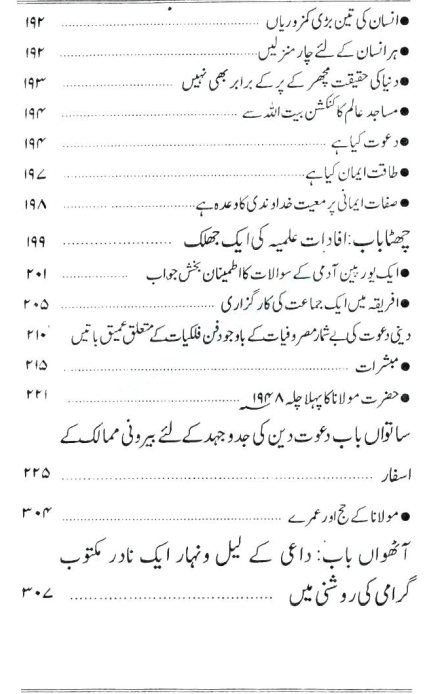 ● انسان کی تین بڑی کمزوریاں ........................ ۱۹۲
● ہر انسان کے لئے چار منزلیں ........................ ۱۹۲
● دنیا کی حقیقت مچھر کے پر کے برابر بھی نہیں ........................ ۱۹۳
● مساجد عالم کا کنکشن بیت اللہ سے ........................ ۱۹۴
● دعوت کیا ہے ........................ ۱۹۴
● طاقت ایمان کیا ہے ........................ ۱۹۷
● صفات ایمانی پر معیت خداوندی کا وعدہ ہے ........................ ۱۹۸
چھٹا باب: افادات علمیہ کی ایک جھلک ........................ ۱۹۹
● ایک یورپین آدمی کے سوالات کا اطمینان بخش جواب ............ ۲۰۱
● افریقہ میں ایک جماعت کی کارگزاری ........................ ۲۰۵
دینی دعوت کی بے شمار مصروفیات کے باوجود فن فلکیات کے متعلق عمیق باتیں ۲۱۰
● مبشرات ........................ ۲۱۵
● حضرت مولانا کا پہلا چلہ ۱۹۴۸ ........................ ۲۲۱
ساتواں باب دعوت دین کی جدوجہد کے لئے بیرونی ممالک کے
اسفار ........................ ۲۲۵
● مولانا کے حج اور عمرے ........................ ۳۰۴
آٹھواں باب: داعی کے لیل و نہار ایک نادر مکتوب
گرامی کی روشنی میں ........................ ۳۰۷